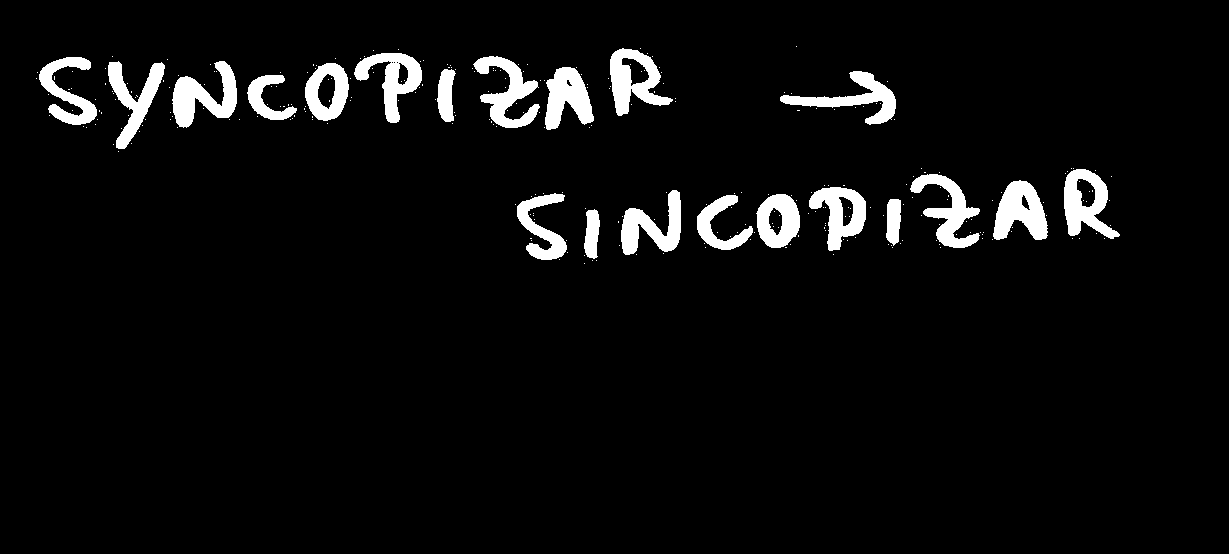 SYNCOPIZAR →
SINCOPIZAR